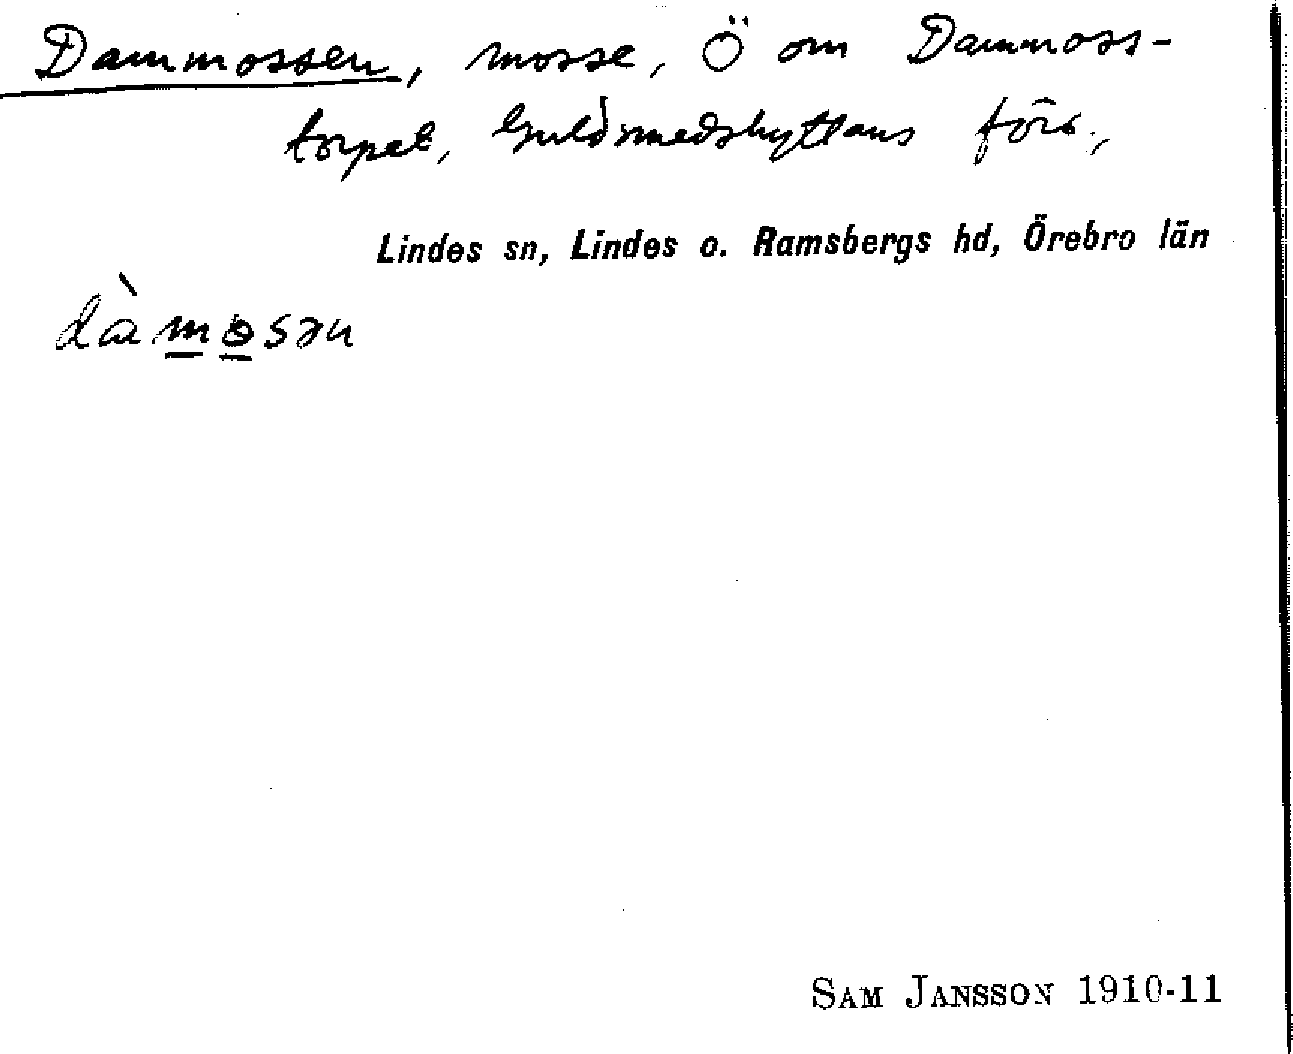 Dammossen, mosse, Ö om Dammoss-
torpet, Guldsmedshyttans förs.,
Lindes sn, Lindes o. Ramsbergs hd, Örebro län
SAM JANSSON 1910-11